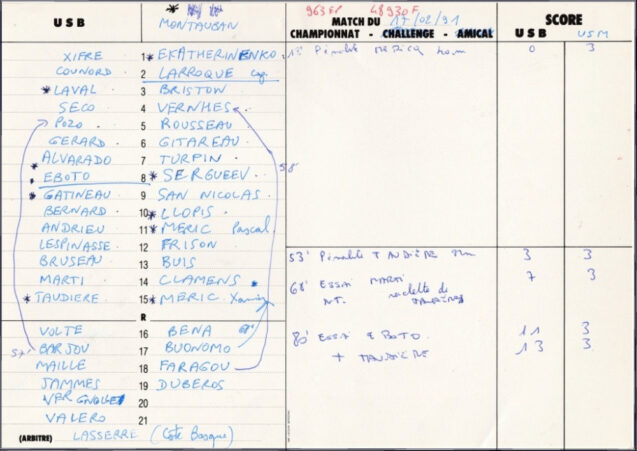 U S B
MONTAUBAN
963 EP 48930 F.
MATCH DU 17/02/91
CHAMPIONNAT - CHALLENGE - AMICAL
SCORE
U S B USM
XIFRE 1 * EKATHERINENKO
COUNORD 2 LARROQUE Cap.
* LAVAL 3 BRISTON
SECO 4 VERNHES
POZO 5 ROUSSEAU
GERARD 6 GITAREAU
ALVARADO 7 TURPIN
* EBOTO 8 * SERGUEEV
* GATINEAU 9 SAN NICOLAS
BERNARD 10 * LLOPIS
ANDRIEU 11 * MERIC Pascal
LESPINASSE 12 FRISON
BRUSEAU 13 BUIS
MARTI 14 CLAMENS
* TAUDIERE 15 * MERIC Xavier
R
VOLTE 16 BENA
57' BARJOU 17 BUONOMO
MAILLE 18 FARAGOU
JAMMES 19 DUBEROS
VERGNOLLE 20
VALERO 21
(ARBITRE) LASSERRE (Côte Basque)
58'
Pénalité MERICQ 0 3
53' Pénalité TAUDIÈRE 3 3
68' ESSAI MARTI 7 3
NT. raclette de TAUDIÈRE
80' ESSAI EBOTO 11 3
+ TAUDIÈRE 13 3